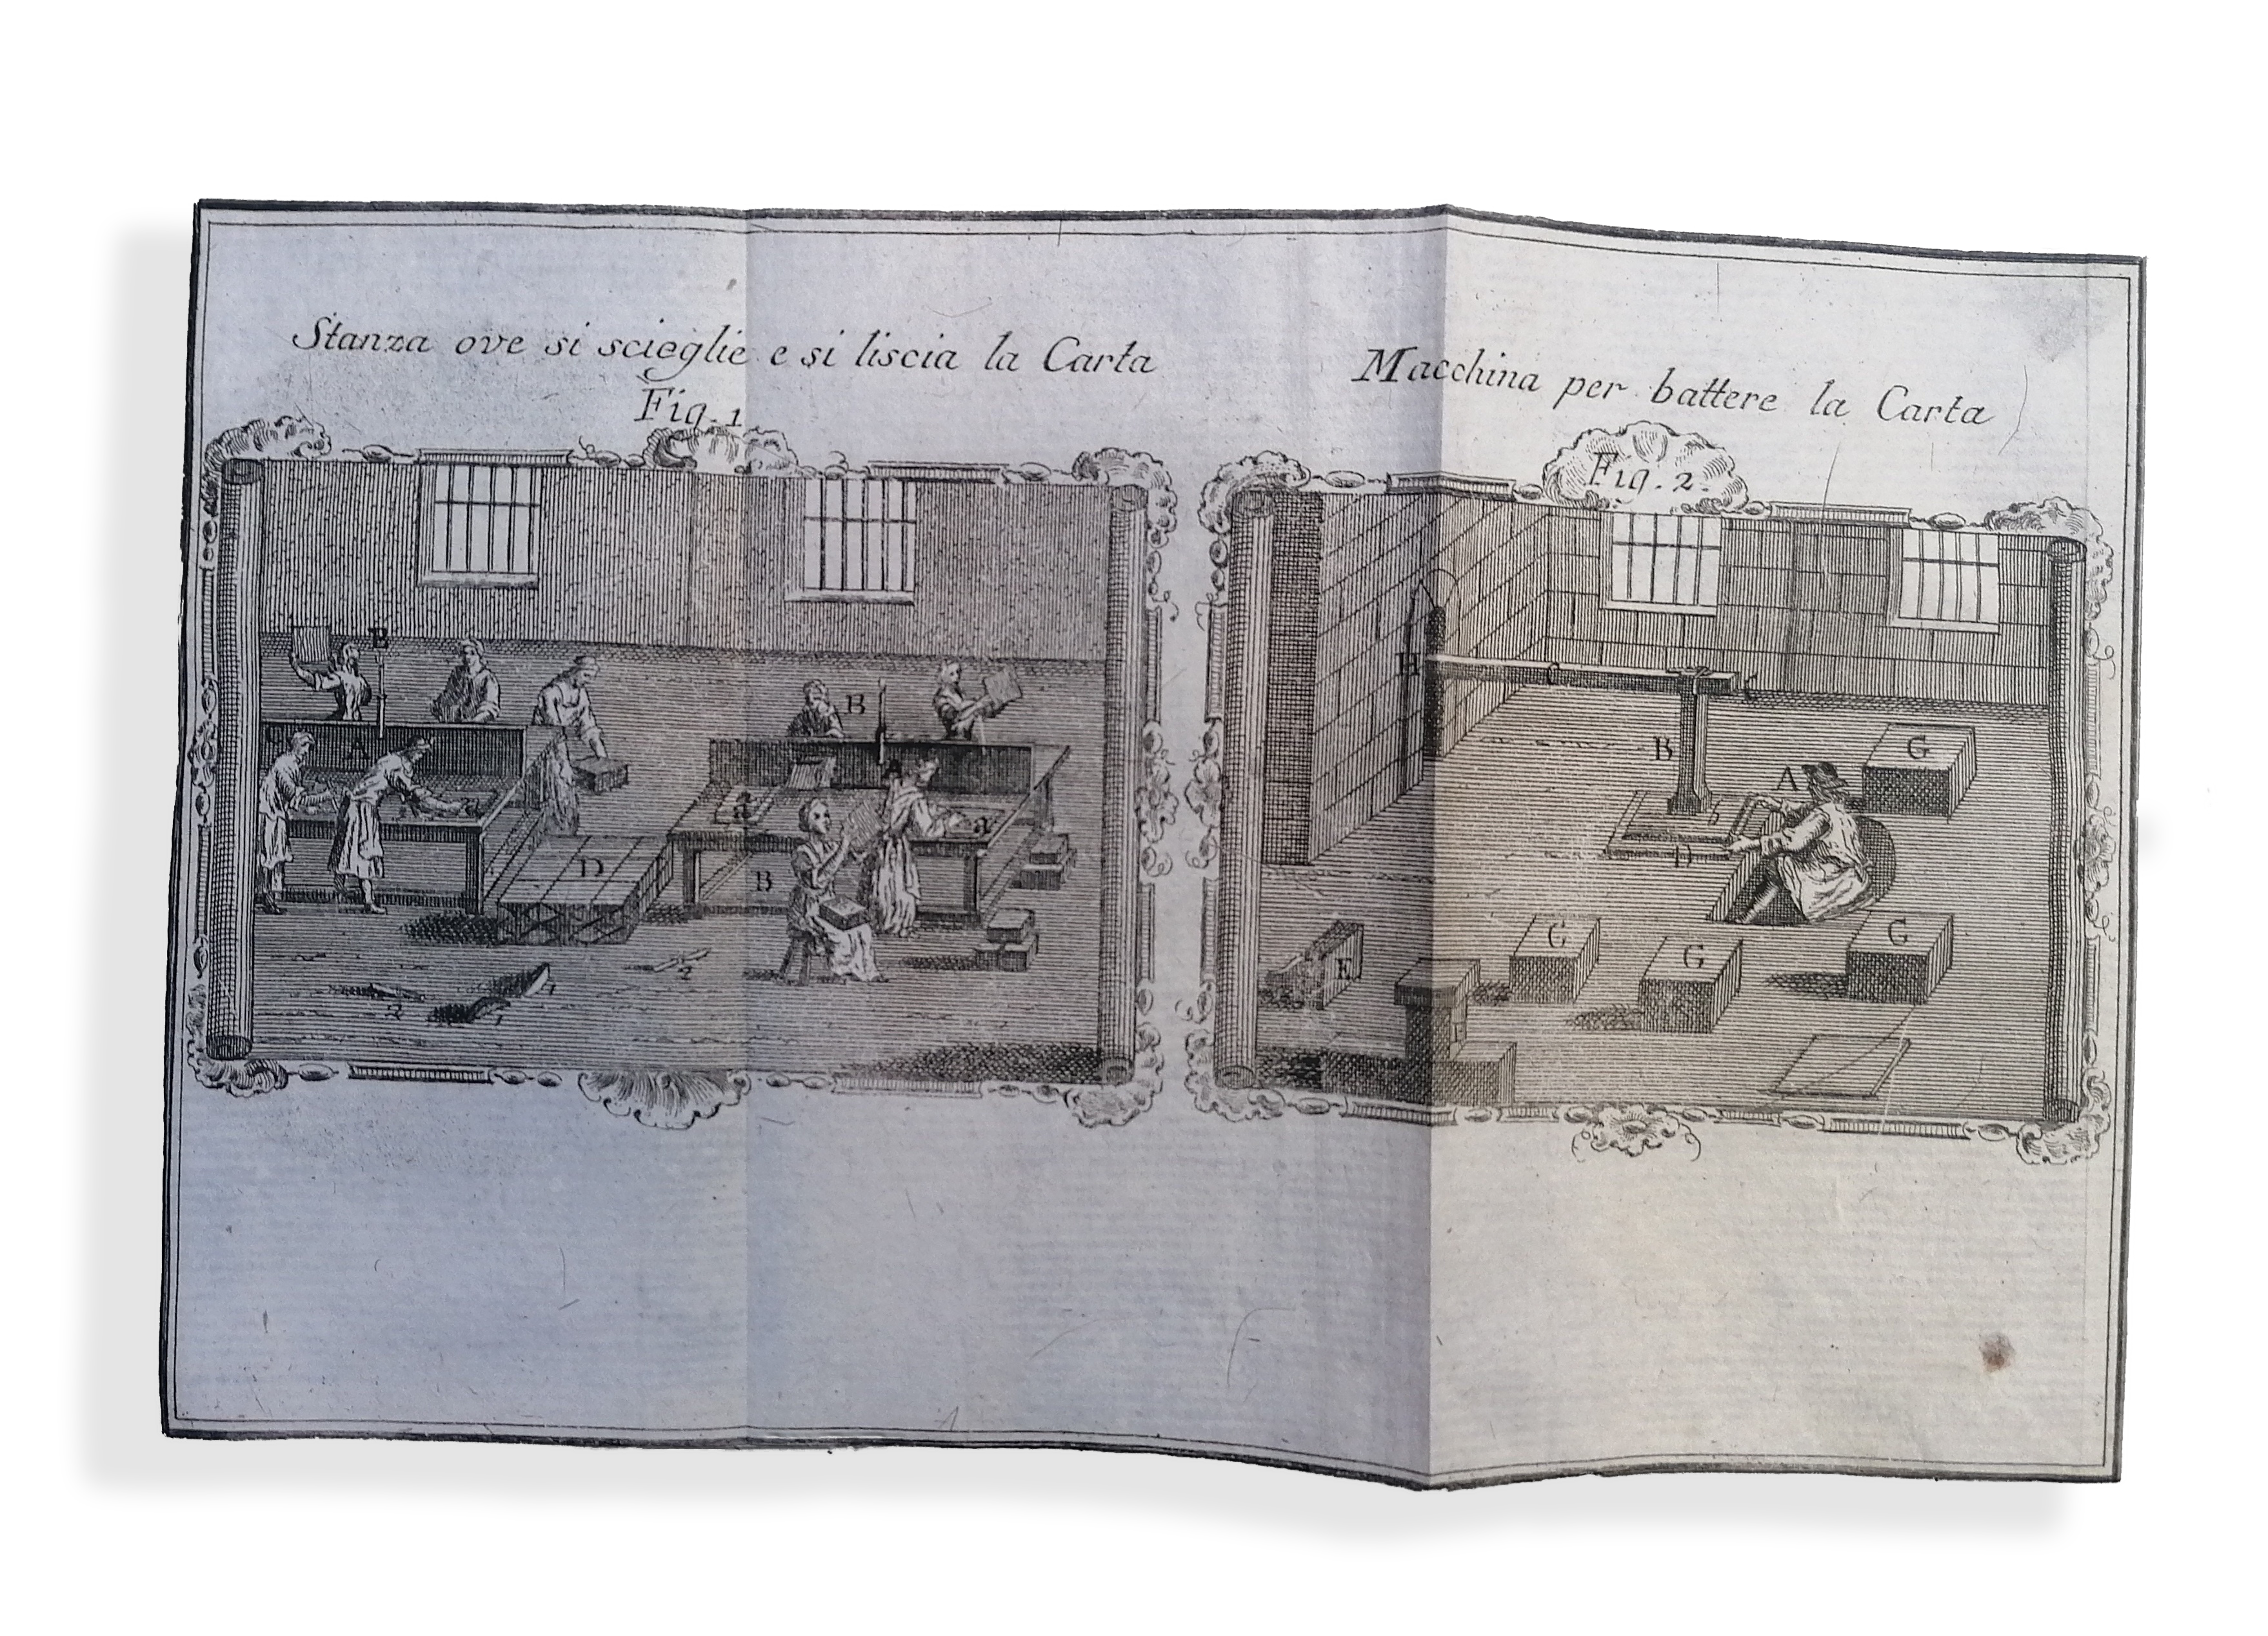 Stanza ove si scieglie e si liscia la Carta
Fig. 1
B
A
B
a
a
D
B
2
1
2
1
Macchina per battere la Carta
Fig. 2.
H
C
B
G
A
b
D
G
G
G
E